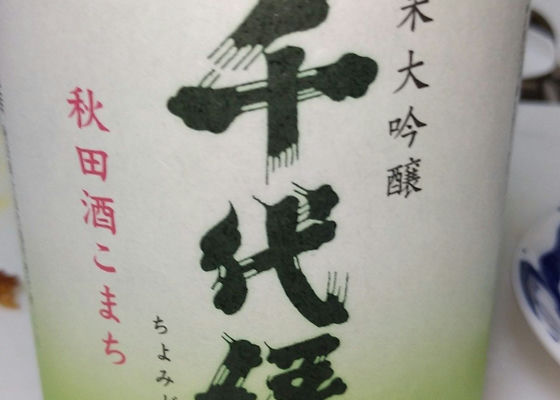 米大吟醸
千代緑
秋田酒こまち
ちよみど